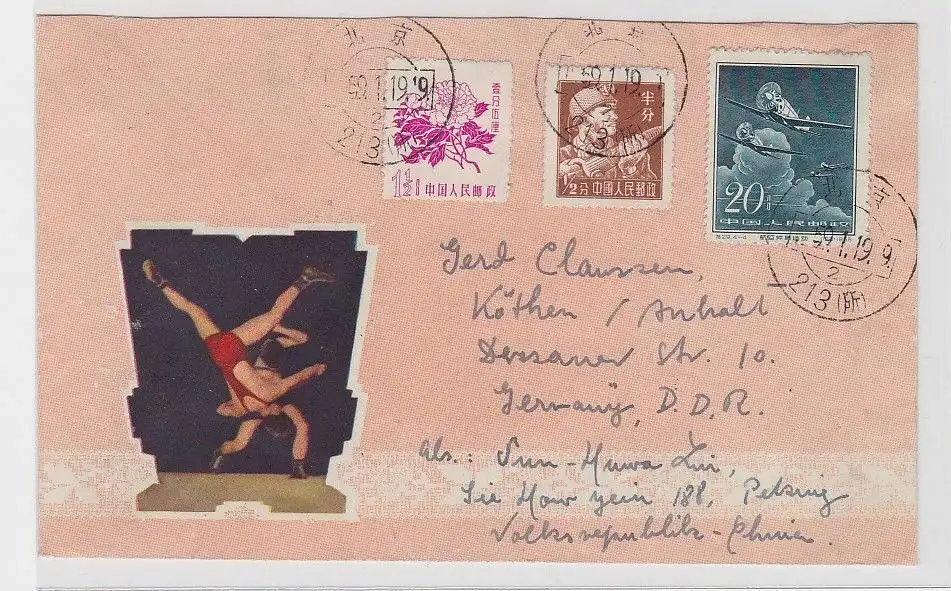 北京
59.1.19.9
2
213(所)
北京
59.1.19
213(所)
壹分伍厘
1½分 中国人民邮政
半分
1/2分 中國人民郵政
20分
中国人民邮政
北京
59.1.19.9
2
213(所)
Gerd Claussen,
Köthen / Anhalt
Dessauer Str. 10.
Germany, D.D.R.
Abs.: Sun-Huwa Lin,
Sie How yein 188, Peking
Volksrepublik-China.